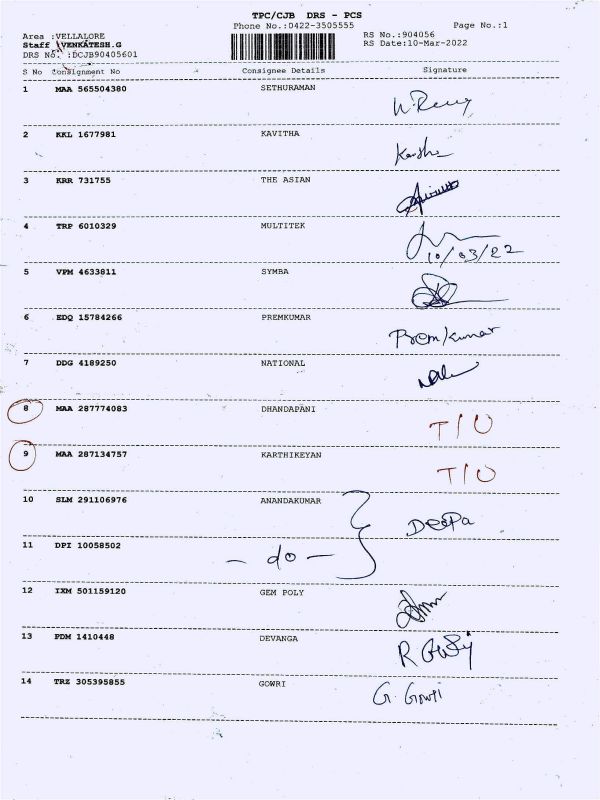 TPC/CJB DRS - PCS
Phone No.:0422-3505555 Page No.:1
Area :VELLALORE RS No.:904056
Staff :VENKATESH.G RS Date:10-Mar-2022
DRS No. :DCJB90405601
S No Consignment No Consignee Details Signature
1 MAA 565504380 SETHURAMAN
2 KKL 1677981 KAVITHA
3 KRR 731755 THE ASIAN
4 TRP 6010329 MULTITEK
10/03/22
5 VPM 4633811 SYMBA
6 EDQ 15784266 PREMKUMAR
Premkumar
7 DDG 4189250 NATIONAL
8 MAA 287774083 DHANDAPANI
T/O
9 MAA 287134757 KARTHIKEYAN
T/O
10 SLM 291106976 ANANDAKUMAR
DeePa
11 DPI 10058502
- do -
12 IXM 501159120 GEM POLY
13 PDM 1410448 DEVANGA
14 TRZ 305395855 GOWRI
G. Gowri